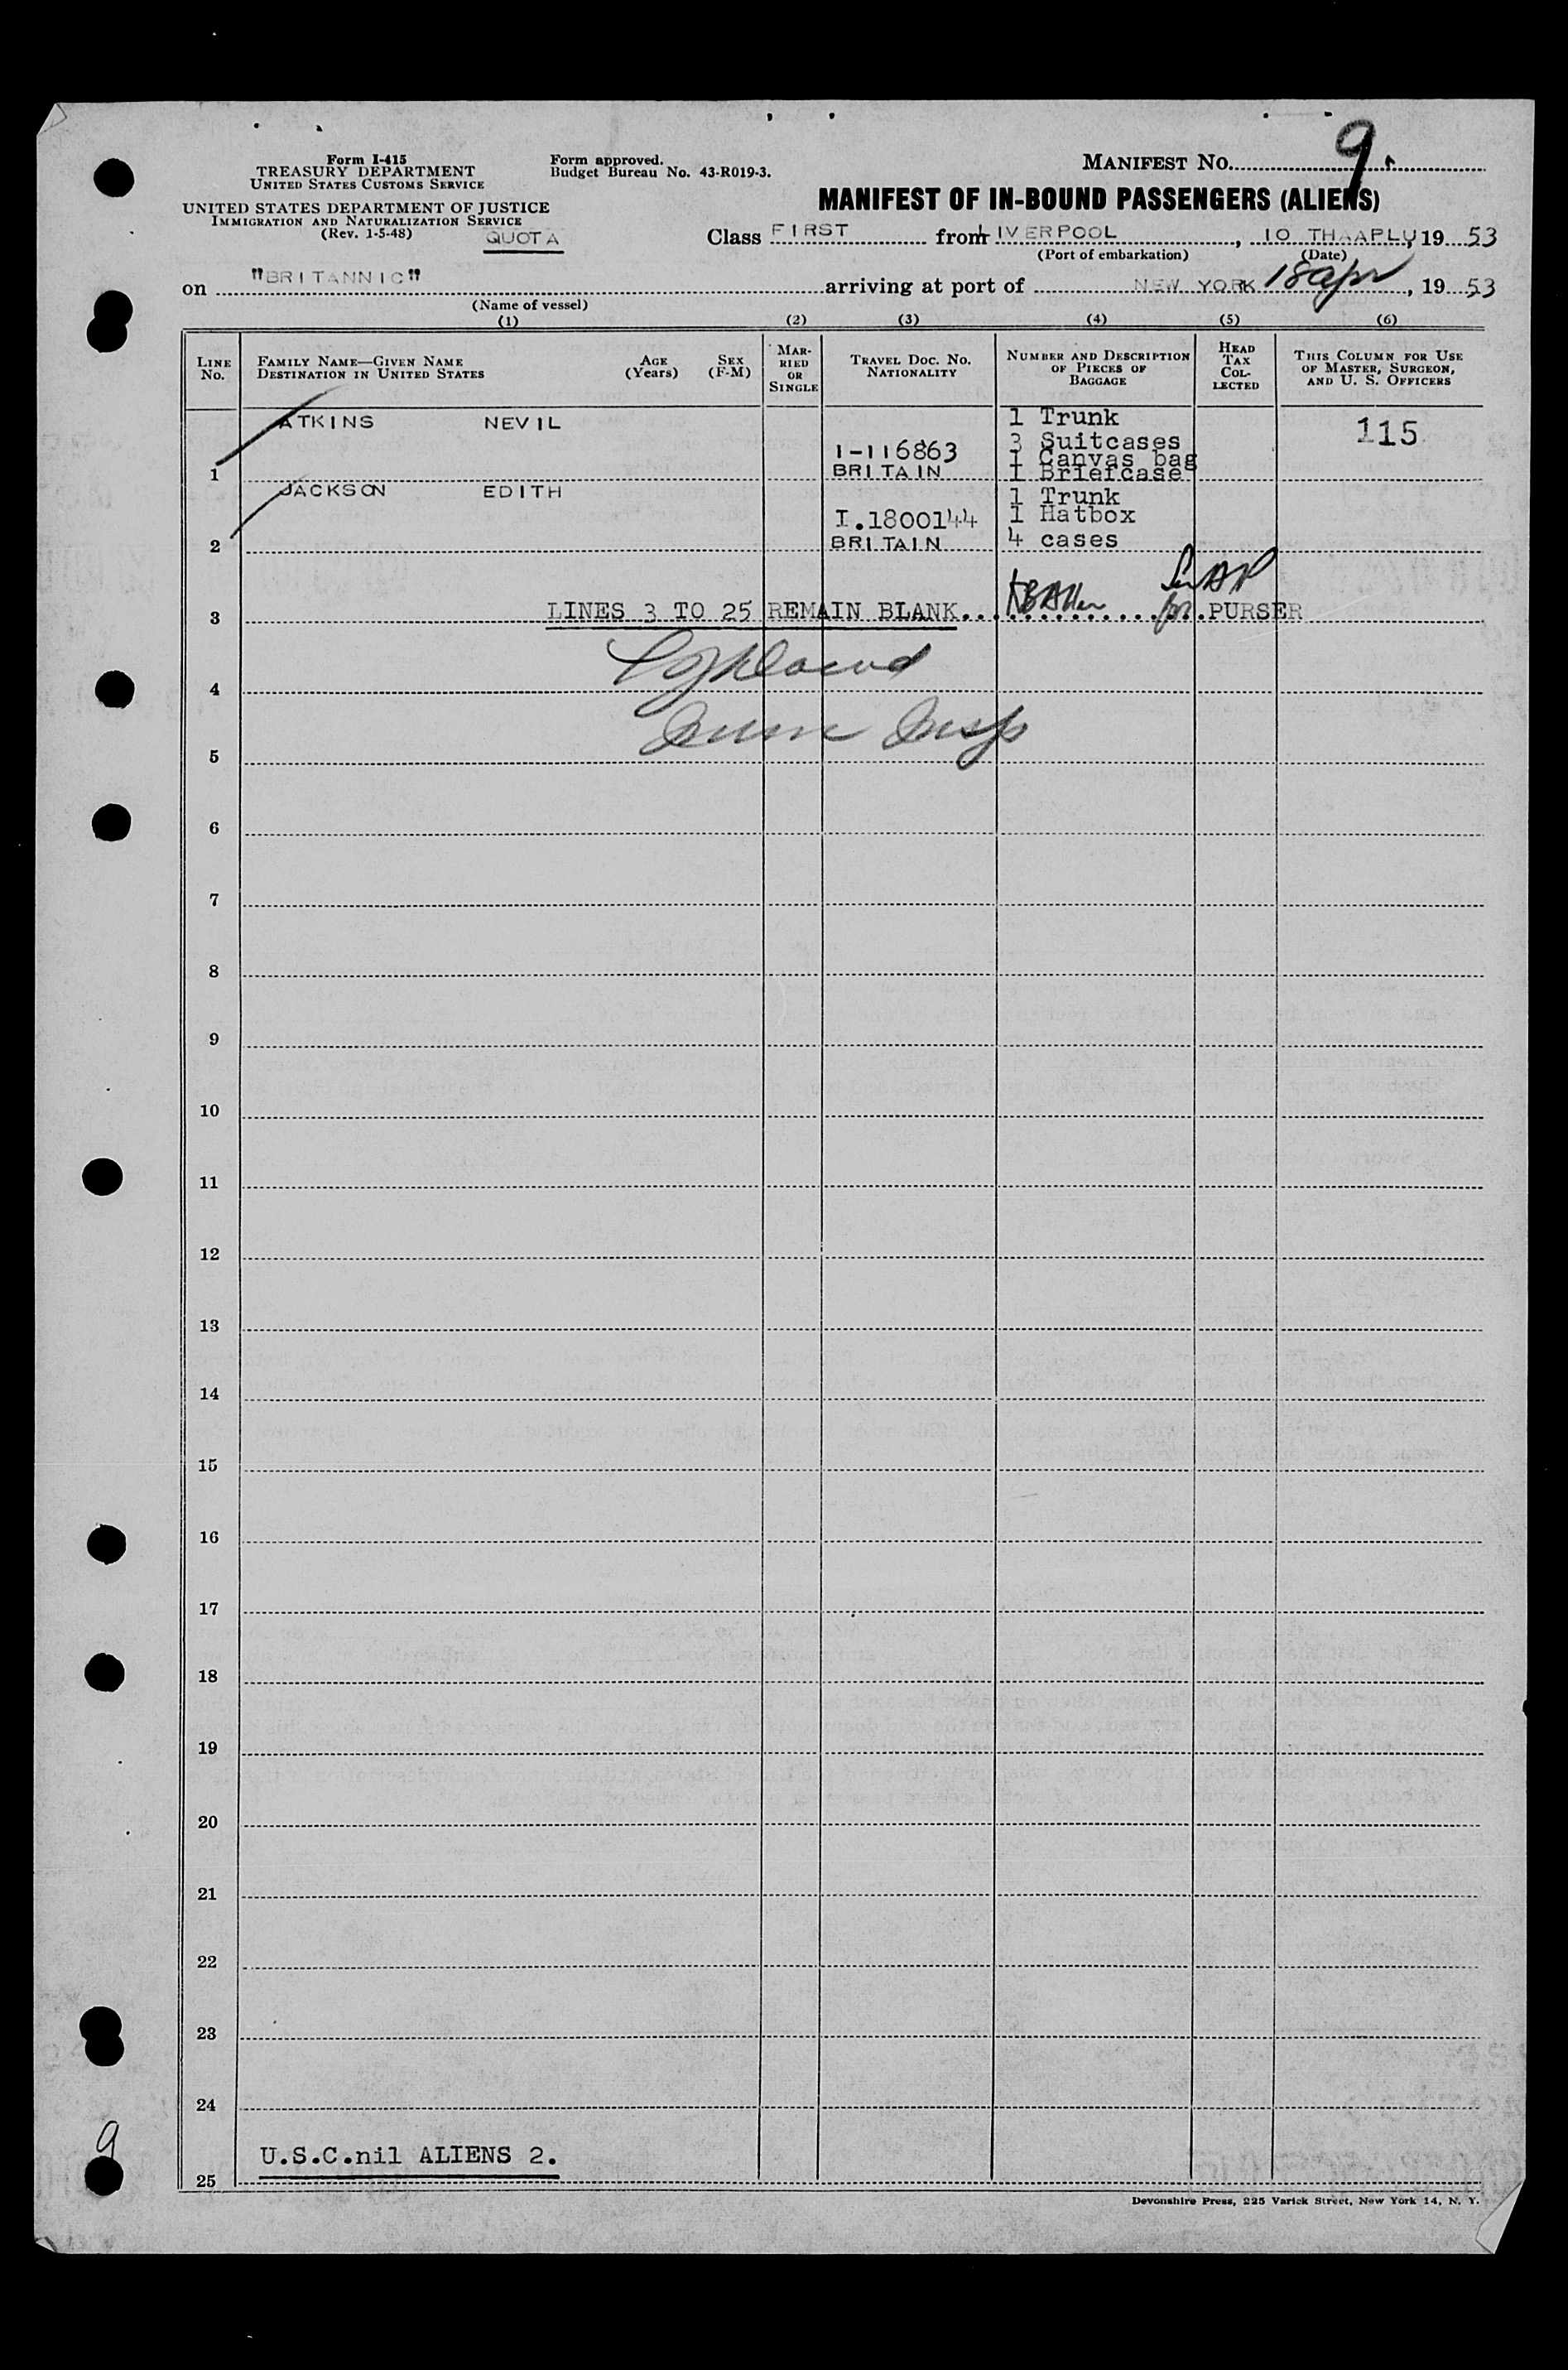 Form I-415
TREASURY DEPARTMENT
UNITED STATES CUSTOMS SERVICE
UNITED STATES DEPARTMENT OF JUSTICE
IMMIGRATION AND NATURALIZATION SERVICE
(Rev. 1-5-48)
QUOTA
Form approved.
Budget Bureau No. 43-R019-3.
MANIFEST NO. 9
MANIFEST OF IN-BOUND PASSENGERS (ALIENS)
Class FIRST from LIVERPOOL, 10 TH, 19 53
(Port of embarkation) (Date)
on "BRITANNIC" arriving at port of NEW YORK 18 apr, 19 53
(Name of vessel)
(1) (2) (3) (4) (5) (6)
LINE NO.
FAMILY NAME—GIVEN NAME
DESTINATION IN UNITED STATES
AGE (Years)
SEX (F-M)
MARRIED OR SINGLE
TRAVEL DOC. NO. NATIONALITY
NUMBER AND DESCRIPTION OF PIECES OF BAGGAGE
HEAD TAX COLLECTED
THIS COLUMN FOR USE OF MASTER, SURGEON, AND U. S. OFFICERS
ATKINS NEVIL
1 Trunk
115
3 Suitcases
1-116863
1 Canvas bag
1 BRITAIN 1 Briefcase
JACKSON EDITH
1 Trunk
I.1800144 1 Hatbox
2 BRITAIN 4 cases
3 LINES 3 TO 25 REMAIN BLANK... PURSER
4
Imm Insp
5
6
7
8
9
10
11
12
13
14
15
16
17
18
19
20
21
22
23
24
9
U.S.C.nil ALIENS 2.
25
Devonshire Press, 225 Varick Street, New York 14, N. Y.